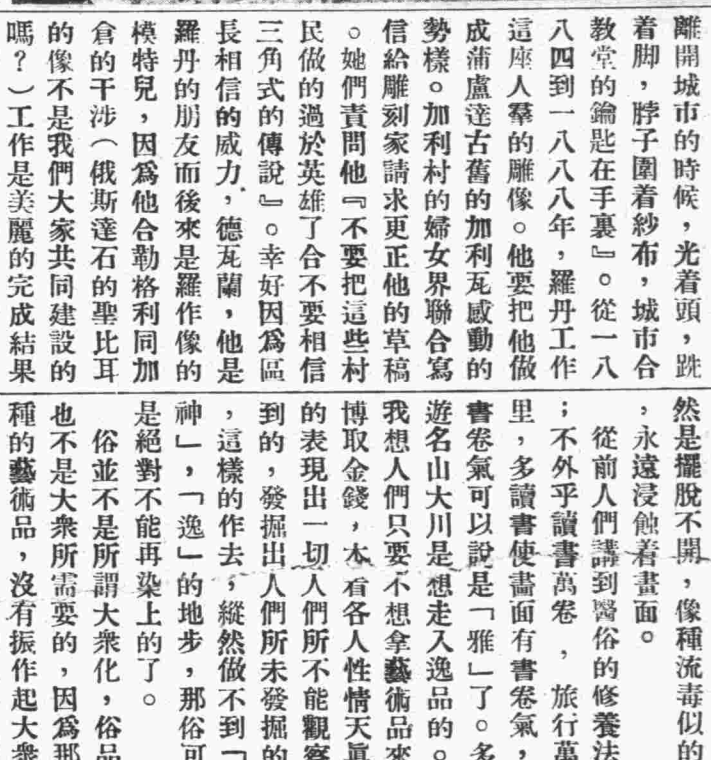 離開城市的時候，光着頭，跣
着脚，脖子圍着紗布，城市合
教堂的鑰匙在手裏』。從一八
八四到一八八八年，羅丹工作
這座人羣的雕像。他要把他做
成蒲盧達古舊的加利瓦感動的
勢樣。加利村的婦女界聯合寫
信給雕刻家請求更正他的草稿
。她們責問他『不要把這些村
民做的過於英雄了合不要相信
三角式的傳說』。幸好因爲區
長相信的威力，德瓦蘭，他是
羅丹的朋友而後來是羅作像的
模特兒，因爲他合勒格利同加
倉的干涉（俄斯達石的聖比耳
的像不是我們大家共同建設的
嗎？）工作是美麗的完成結果
然是擺脫不開，像種流毒似的
，永遠浸蝕着畫面。
從前人們講到醫俗的修養法
；不外乎讀書萬卷，旅行萬
里，多讀書使畵面有書卷氣，
書卷氣可以說是「雅」了。多
遊名山大川是想走入逸品的。
我想人們只要不想拿藝術品來
博取金錢，本着各人性情天眞
的表現出一切人們所不能觀察
到的，發掘出人們所未發掘的
，這樣的作去，縱然做不到「
神」，「逸」的地步，那俗可
是絕對不能再染上的了。
俗並不是所謂大衆化，俗品
也不是大衆所需要的，因爲那
種的藝術品，沒有振作起大衆